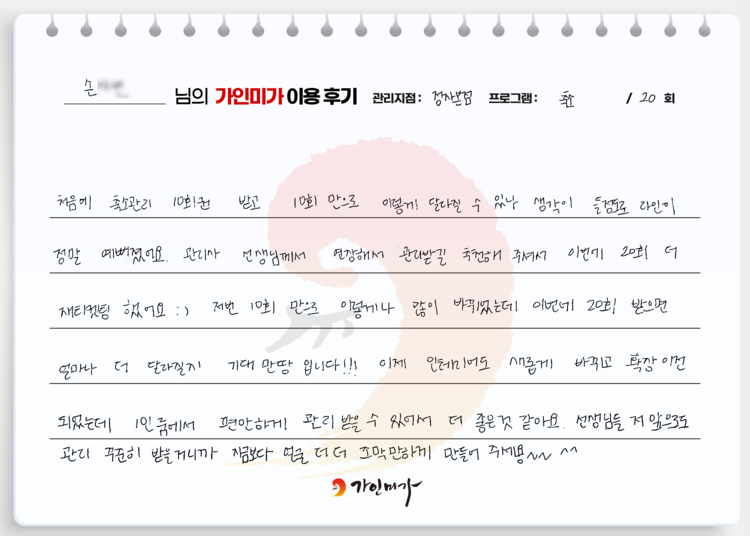 손 님의 가인미가 이용 후기 관리지점 : 정자본점 프로그램 : 축소 / 20 회
처음에 축소관리 10회권 받고 10회 만으로 이렇게 달라질 수 있나 생각이 들정도로 라인이
정말 예뻐졌어요. 관리사 선생님께서 연장해서 관리받길 추천해 주셔서 이번에 20회 더
재티켓팅 했어요 :) 저번 10회 만으로 이렇게나 많이 바뀌었는데 이번에 20회 받으면
얼마나 더 달라질지 기대 만땅 입니다!!! 이제 인테리어도 새롭게 바꾸고 확장이전
되었는데 1인룸에서 편안하게 관리 받을 수 있어서 더 좋은것 같아요. 선생님들 저 앞으로도
관리 꾸준히 받을거니까 지금보다 얼굴 더 더 조막만하게 만들어 주세용~~ ^^
가인미가